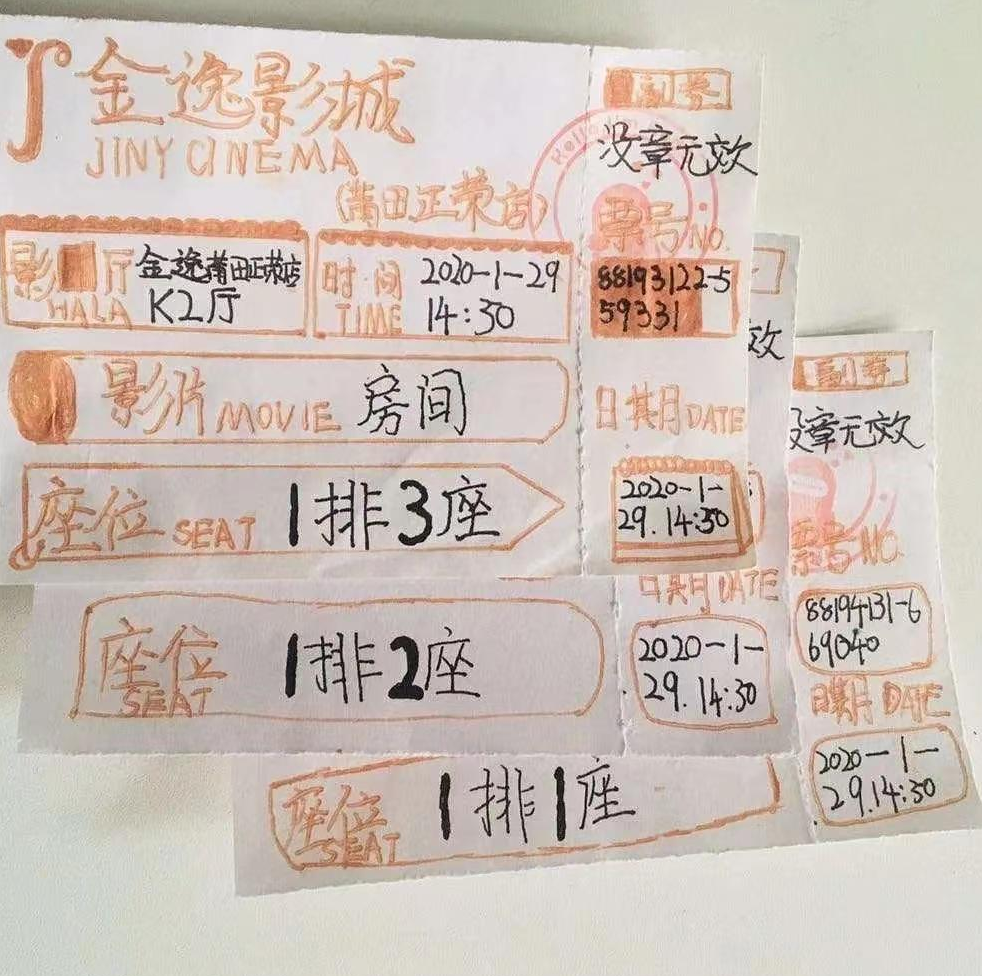 金逸影城
JINY CINEMA
(莆田正荣店)
影 厅 金逸莆田正荣店
HALA K2厅
时间 2020-1-29
TIME 14:30
影片 MOVIE 房间
座位 SEAT 1排3座
副券
没章无效
票号 NO.
88193122-5
59331
日期 DATE
2020-1-
29.14:30
效
座位 1排2座
SEAT
日期 DATE
2020-1-
29.14:30
座位 1排1座
SEAT
副券
没章无效
票号 NO.
88194131-6
69040
日期 DATE
2020-1-
29.14:30